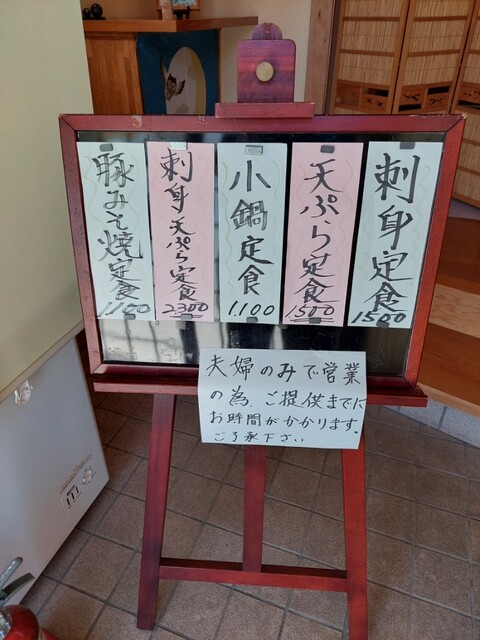 刺身定食
1500
天ぷら定食
1500
小鍋定食
1.100
刺身天ぷら定食
2300
豚みそ焼定食
1.100
夫婦のみで営業
の為、ご提供までに
お時間がかかります。
ご了承下さい